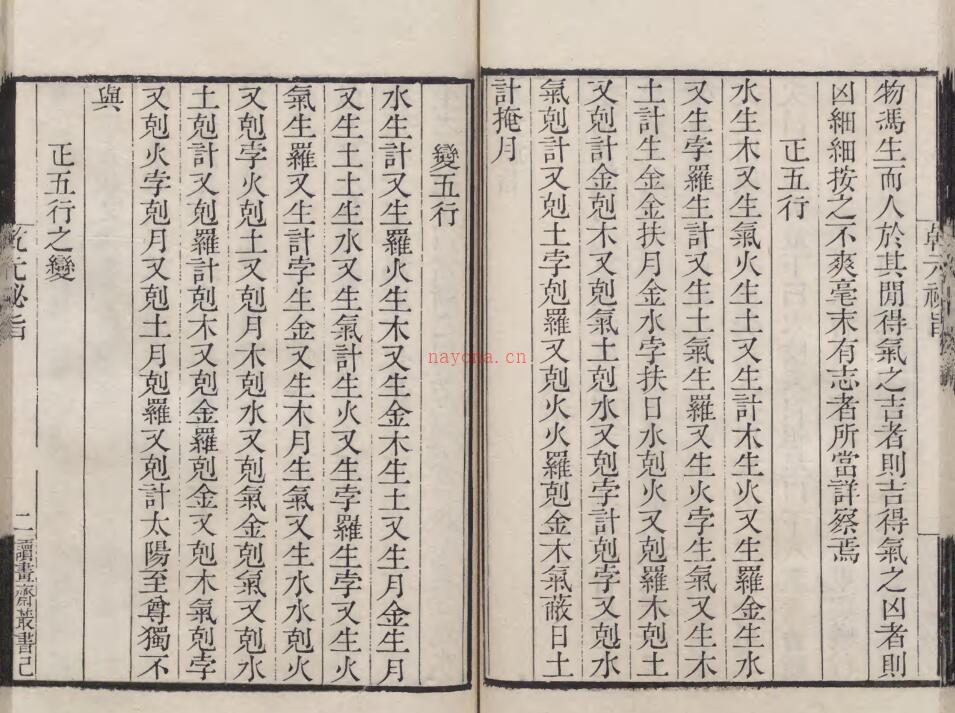 物馮生而人於其閒得氣之吉者則吉得氣之凶者則
凶細細按之不爽毫末有志者所當詳察焉
正五行
水生木又生氣火生土又生計木生火又生羅金生水
又生孛羅生計又生土氣生羅又生火孛生氣又生木
土計生金金扶月金水孛扶日水剋火又剋羅木剋土
又剋計金剋木又剋氣土剋水又剋孛計剋孛又剋水
氣剋計又剋土孛剋羅又剋火火羅剋金木氣蔽日土
計掩月
變五行
水生計又生羅火生木又生金木生土又生月金生月
又生土土生水又生氣計生火又生孛羅生孛又生火
氣生羅又生計孛生金又生木月生氣又生水水剋火
又剋孛火剋土又剋月木剋水又剋氣金剋氣又剋水
土剋計又剋羅計剋木又剋金羅剋金又剋木氣剋孛
又剋火孛剋月又剋土月剋羅又剋計太陽至尊獨不
與
正五行之變
乾元秘旨
二
讀畫齋叢書己
nayona.cn